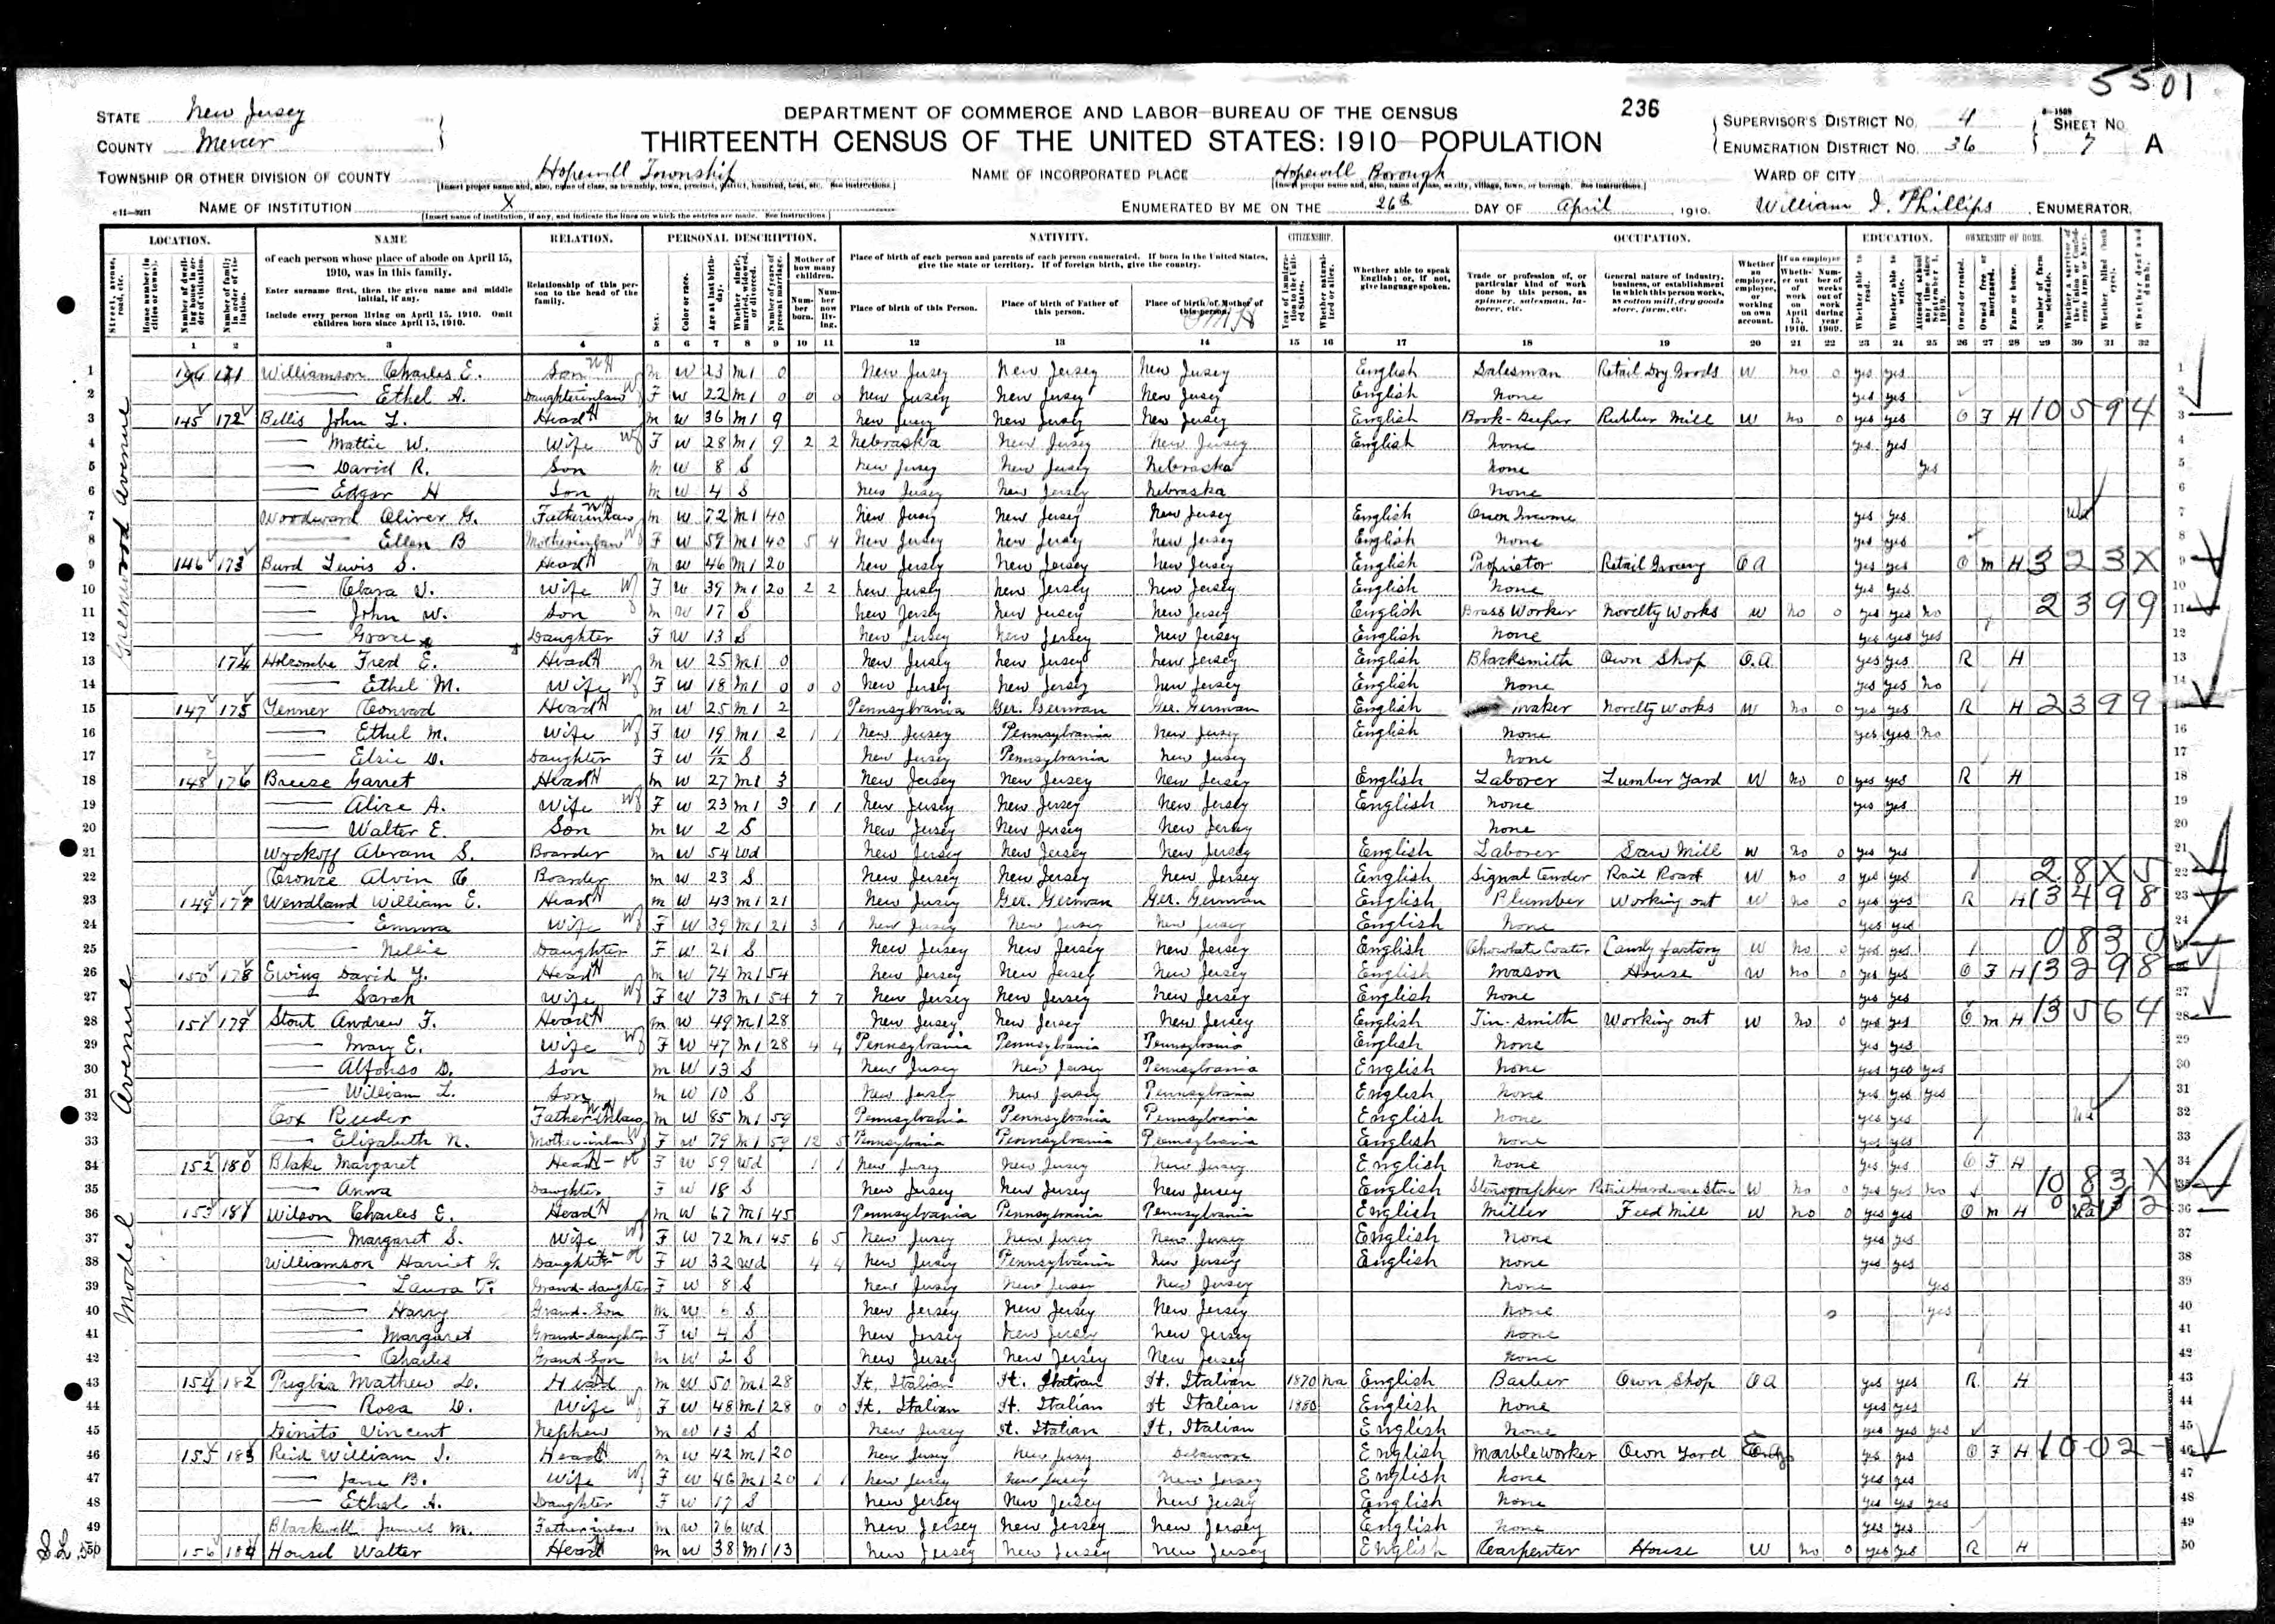 5501
STATE New Jersey
COUNTY Mercer
DEPARTMENT OF COMMERCE AND LABOR—BUREAU OF THE CENSUS
236
THIRTEENTH CENSUS OF THE UNITED STATES: 1910—POPULATION
SUPERVISOR'S DISTRICT NO. 4
ENUMERATION DISTRICT NO. 36
SHEET NO. 7 A
TOWNSHIP OR OTHER DIVISION OF COUNTY Hopewell Township
NAME OF INCORPORATED PLACE Hopewell Borough
WARD OF CITY
NAME OF INSTITUTION X
ENUMERATED BY ME ON THE 26th DAY OF April, 1910. William I. Phillips, ENUMERATOR.
LOCATION. NAME RELATION. PERSONAL DESCRIPTION. NATIVITY. CITIZENSHIP. OCCUPATION. EDUCATION. OWNERSHIP OF HOME.
Greenwood Avenue
Model Avenue
1 Williamson Charles E. Son m W 23 M1 0 New Jersey New Jersey New Jersey English Salesman Retail Dry Goods W no 0 yes yes
2 Ethel A. Daughterinlaw F W 22 M1 0 0 0 New Jersey New Jersey New Jersey English None yes yes
3 145 172 Bellis John L. Head m W 36 M1 9 New Jersey New Jersey New Jersey English Book-Keeper Rubber Mill W no 0 yes yes O F H 10594
4 Mattie W. Wife F W 28 M1 9 2 2 Nebraska New Jersey New Jersey English None yes yes
5 David R. Son m W 8 S New Jersey New Jersey Nebraska None yes
6 Edgar H Son m W 4 S New Jersey New Jersey Nebraska None
7 Woodward Oliver G. Fatherinlaw m W 72 M1 40 New Jersey New Jersey New Jersey English Own Income yes yes
8 Ellen B Motherinlaw F W 59 M1 40 5 4 New Jersey New Jersey New Jersey English None yes yes
9 146 173 Burd Lewis S. Head m W 46 M1 20 New Jersey New Jersey New Jersey English Proprietor Retail Grocery OA yes yes O m H 323X
10 Clara V. Wife F W 39 M1 20 2 2 New Jersey New Jersey New Jersey English None yes yes
11 John W. Son m W 17 S New Jersey New Jersey New Jersey English Brass Worker Novelty Works W no 0 yes yes no 2399
12 Grace Daughter F W 13 S New Jersey New Jersey New Jersey English None yes yes yes
13 174 Holcombe Fred E. Head m W 25 M1 0 New Jersey New Jersey New Jersey English Blacksmith Own Shop O.A. yes yes R H
14 Ethel M. Wife F W 18 M1 0 0 0 New Jersey New Jersey New Jersey English None yes yes no
15 147 175 Conrad Head m W 25 M1 2 Pennsylvania Ger. German Ger. German English maker Novelty Works W no 0 yes yes R H 2399
16 Ethel M. Wife F W 19 M1 2 1 1 New Jersey Pennsylvania New Jersey English None yes yes no
17 Elsie D. Daughter F W 11/12 S New Jersey Pennsylvania New Jersey None
18 148 176 Breese Garret Head m W 27 M1 3 New Jersey New Jersey New Jersey English Laborer Lumber Yard W no 0 yes yes R H
19 Alice A. Wife F W 23 M1 3 1 1 New Jersey New Jersey New Jersey English None yes yes
20 Walter E. Son m W 2 S New Jersey New Jersey New Jersey None
21 Wyckoff Abram S. Boarder m W 54 Wd New Jersey New Jersey New Jersey English Laborer Saw Mill W no 0 yes yes
22 Cronce Alvin C Boarder m W 23 S New Jersey New Jersey New Jersey English Signal tender Rail Road W no 0 yes yes 28X5
23 149 177 Wendland William E. Head m W 43 M1 21 New Jersey Ger. German Ger. German English Plumber Working out W no 0 yes yes R H 13498
24 Emma Wife F W 39 M1 21 3 1 New Jersey New Jersey New Jersey English None yes yes
25 Nellie Daughter F W 21 S New Jersey New Jersey New Jersey English Chocolate Coater Candy factory W no 0 yes yes 0830
26 150 178 Ewing David Y. Head m W 74 M1 54 New Jersey New Jersey New Jersey English Mason House W no 0 yes yes O F H 13298
27 Sarah Wife F W 73 M1 54 7 7 New Jersey New Jersey New Jersey English None yes yes
28 151 179 Stout Andrew F. Head m W 49 M1 28 New Jersey New Jersey New Jersey English Tin-smith Working out W no 0 yes yes O m H 13564
29 Mary E. Wife F W 47 M1 28 4 4 Pennsylvania Pennsylvania Pennsylvania English None yes yes
30 Alfonso D. Son m W 13 S New Jersey New Jersey Pennsylvania English None yes yes yes
31 William L. Son m W 10 S New Jersey New Jersey Pennsylvania English None yes yes yes
32 Cox Reeder Father-inlaw m W 85 M1 59 Pennsylvania Pennsylvania Pennsylvania English None yes yes
33 Elizabeth N. Mother-inlaw F W 79 M1 59 12 5 Pennsylvania Pennsylvania Pennsylvania English None yes yes
34 152 180 Blake Margaret Head F W 59 Wd 1 1 New Jersey New Jersey New Jersey English None yes yes O F H
35 Anna Daughter F W 18 S New Jersey New Jersey New Jersey English Stenographer Retail Hardware Store W no 0 yes yes no 1083X
36 153 181 Wilson Charles E. Head m W 67 M1 45 Pennsylvania Pennsylvania Pennsylvania English Miller Feed Mill W no 0 yes yes O m H
37 Margaret S. Wife F W 72 M1 45 6 5 New Jersey New Jersey New Jersey English None yes yes
38 Williamson Harriet G. Daughter F W 32 Wd 4 4 New Jersey Pennsylvania New Jersey English None yes yes
39 Laura Grand-daughter F W 8 S New Jersey New Jersey New Jersey None yes
40 Harry Grand-Son m W 6 S New Jersey New Jersey New Jersey None yes
41 Margaret Grand-daughter F W 4 S New Jersey New Jersey New Jersey None
42 Charles Grand Son m W 2 S New Jersey New Jersey New Jersey None
43 154 182 Puglia Mathew D. Head m W 50 M1 28 It. Italian It. Italian It. Italian 1870 Na English Barber Own Shop OA yes yes R H
44 Rosa D. Wife F W 48 M1 28 0 0 It. Italian It. Italian It Italian 1880 English None yes yes
45 Dinito Vincent Nephew m W 13 S New Jersey It. Italian It. Italian English None yes yes yes
46 155 183 Reid William J. Head m W 42 M1 20 New Jersey New Jersey Delaware English Marble Worker Own Yard yes yes O F H 1002-
47 Jane B. Wife F W 46 M1 20 1 1 New Jersey New Jersey New Jersey English None yes yes
48 Ethel A. Daughter F W 17 S New Jersey New Jersey New Jersey English None yes yes yes
49 Blackwell James M. Father-inlaw m W 76 Wd New Jersey New Jersey New Jersey English None yes yes
50 156 184 Housel Walter Head m W 38 M1 13 New Jersey New Jersey New Jersey English Carpenter House W no 0 yes yes R H